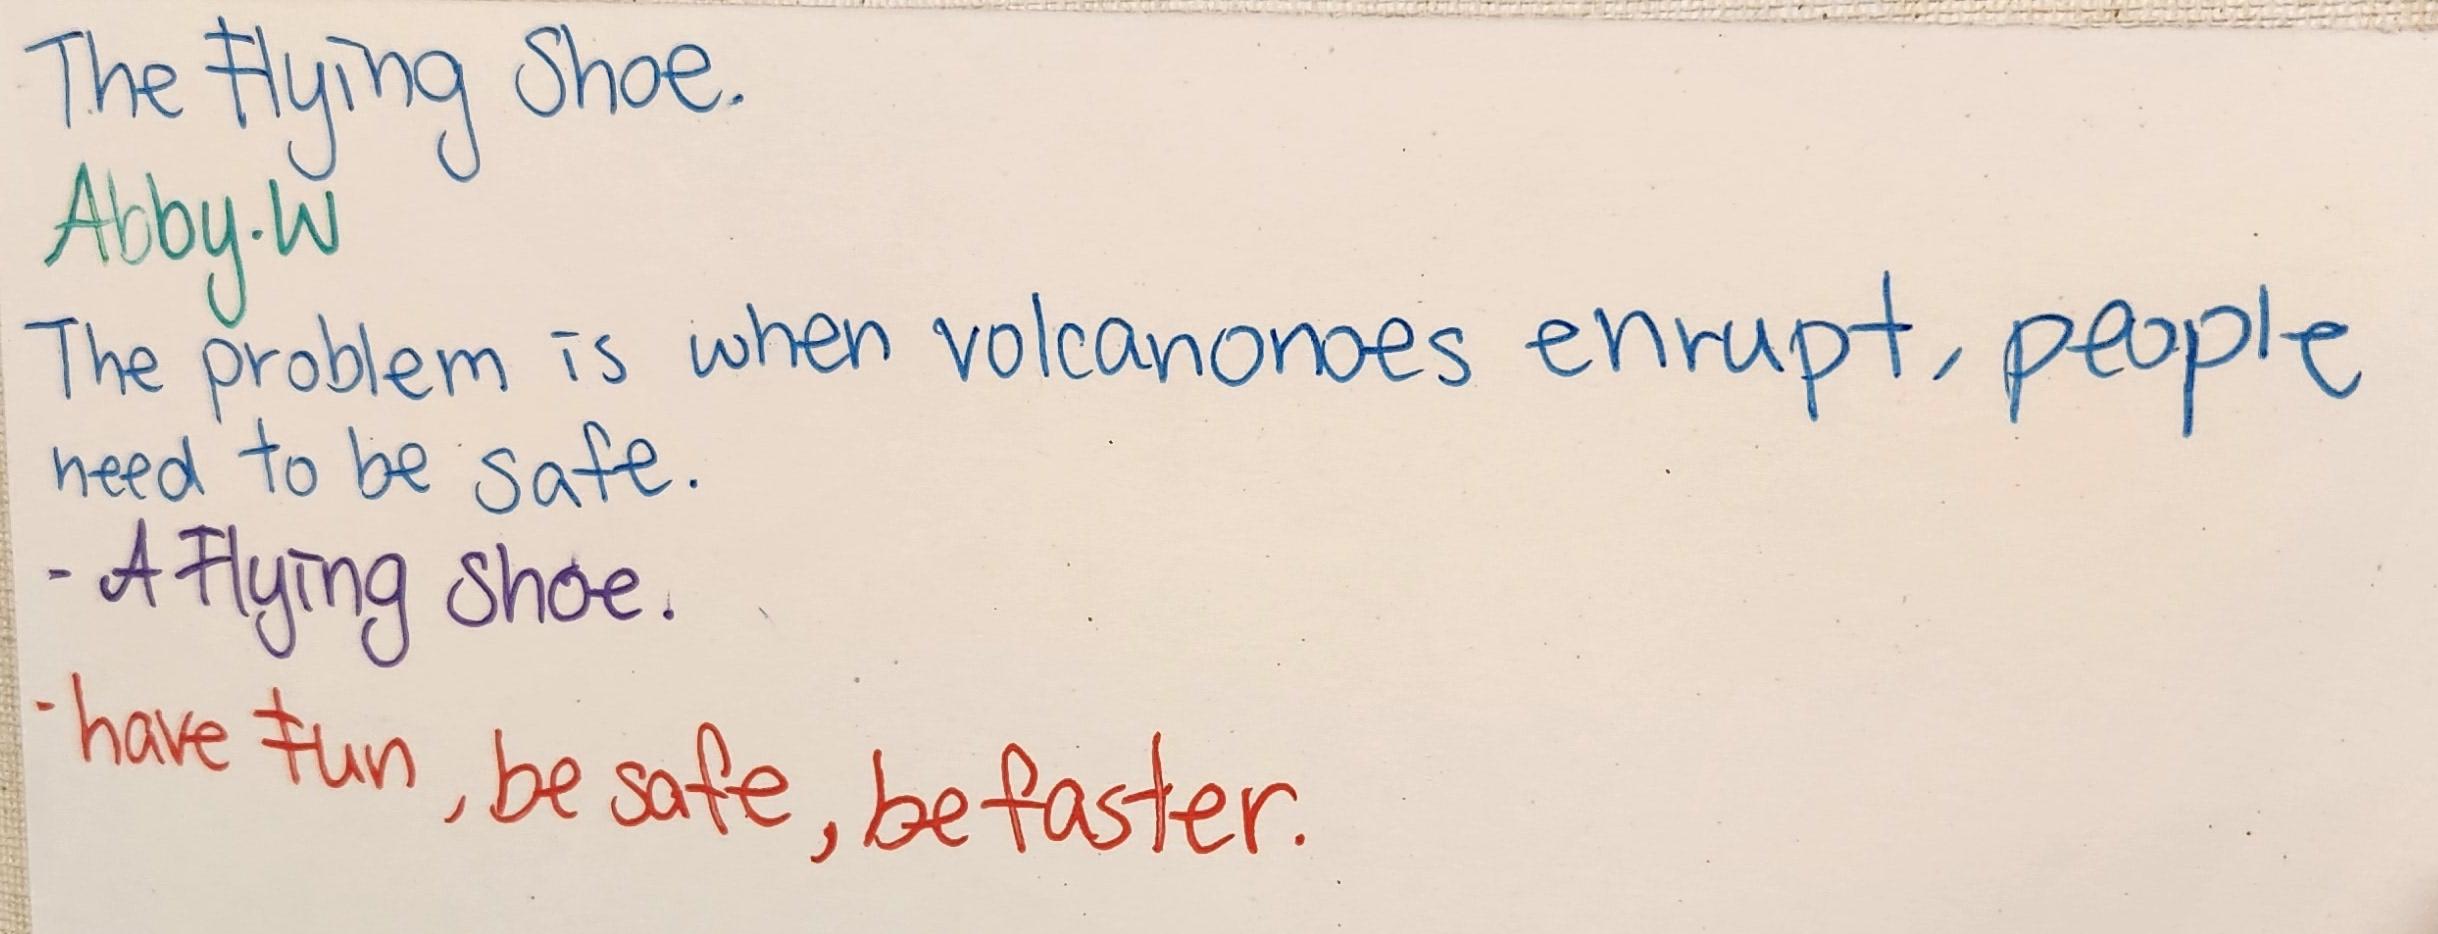 The Flying Shoe.
Abby.W
The problem is when volcanonoes enrupt, people
need to be safe.
- A Flying shoe.
- have fun, be safe, be faster.